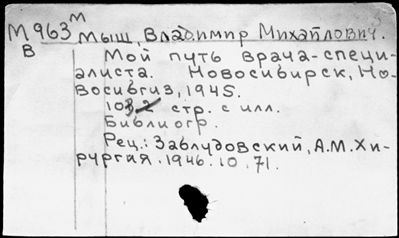 М963м Мыш, Владимир Михайлович.
В
Мой путь врача-специ-
алиста. Новосибирск, Но-
восибгиз, 1945.
102 стр. с илл.
Библиогр.
Рец.: Заблудовский, А.М. Хи-
рургия. 1946. 10. 71.